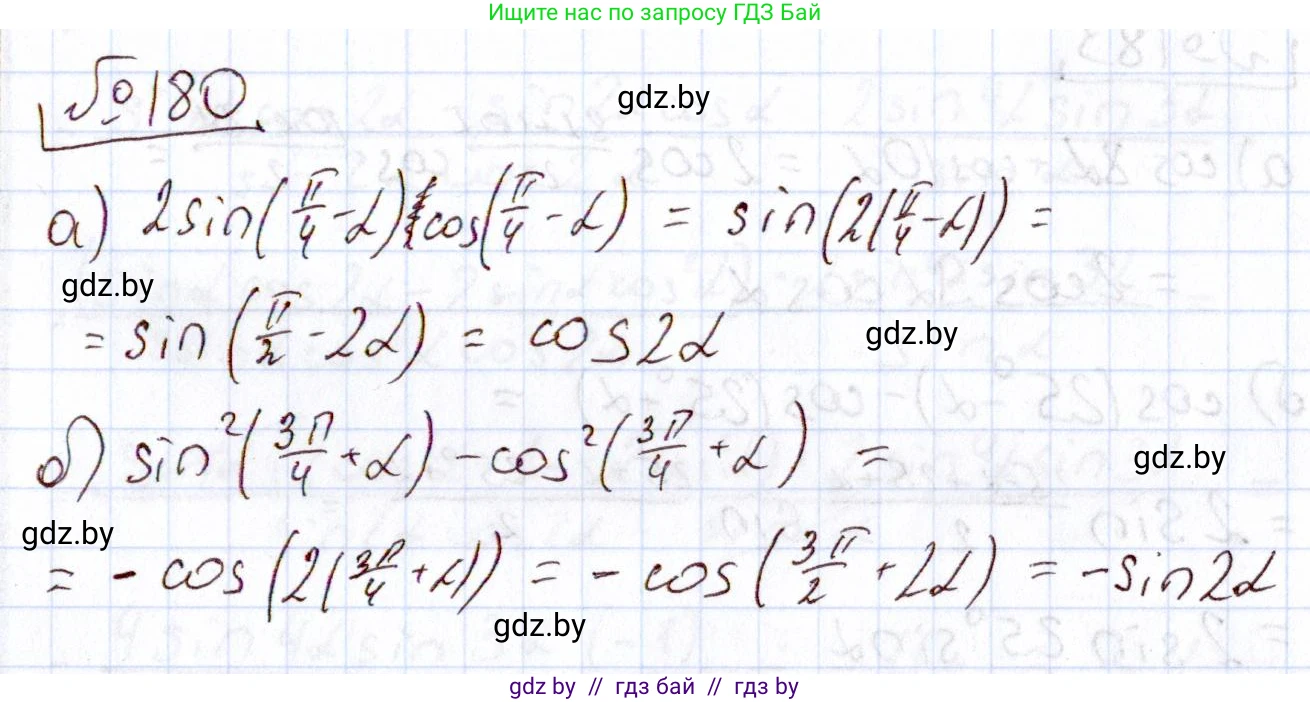 Ищите нас по запросу ГДЗ Бай
№180
gdz.by
а) 2sin(π/4 - α)cos(π/4 - α) = sin(2(π/4 - α)) =
gdz.by
= sin(π/2 - 2α) = cos2α
gdz.by
б) sin²(3π/4 + α) - cos²(3π/4 + α) =
gdz.by
gdz.by
= - cos(2(3π/4 + α)) = - cos(3π/2 + 2α) = -sin2α
gdz.by
gdz by // гдз бай // гдз by